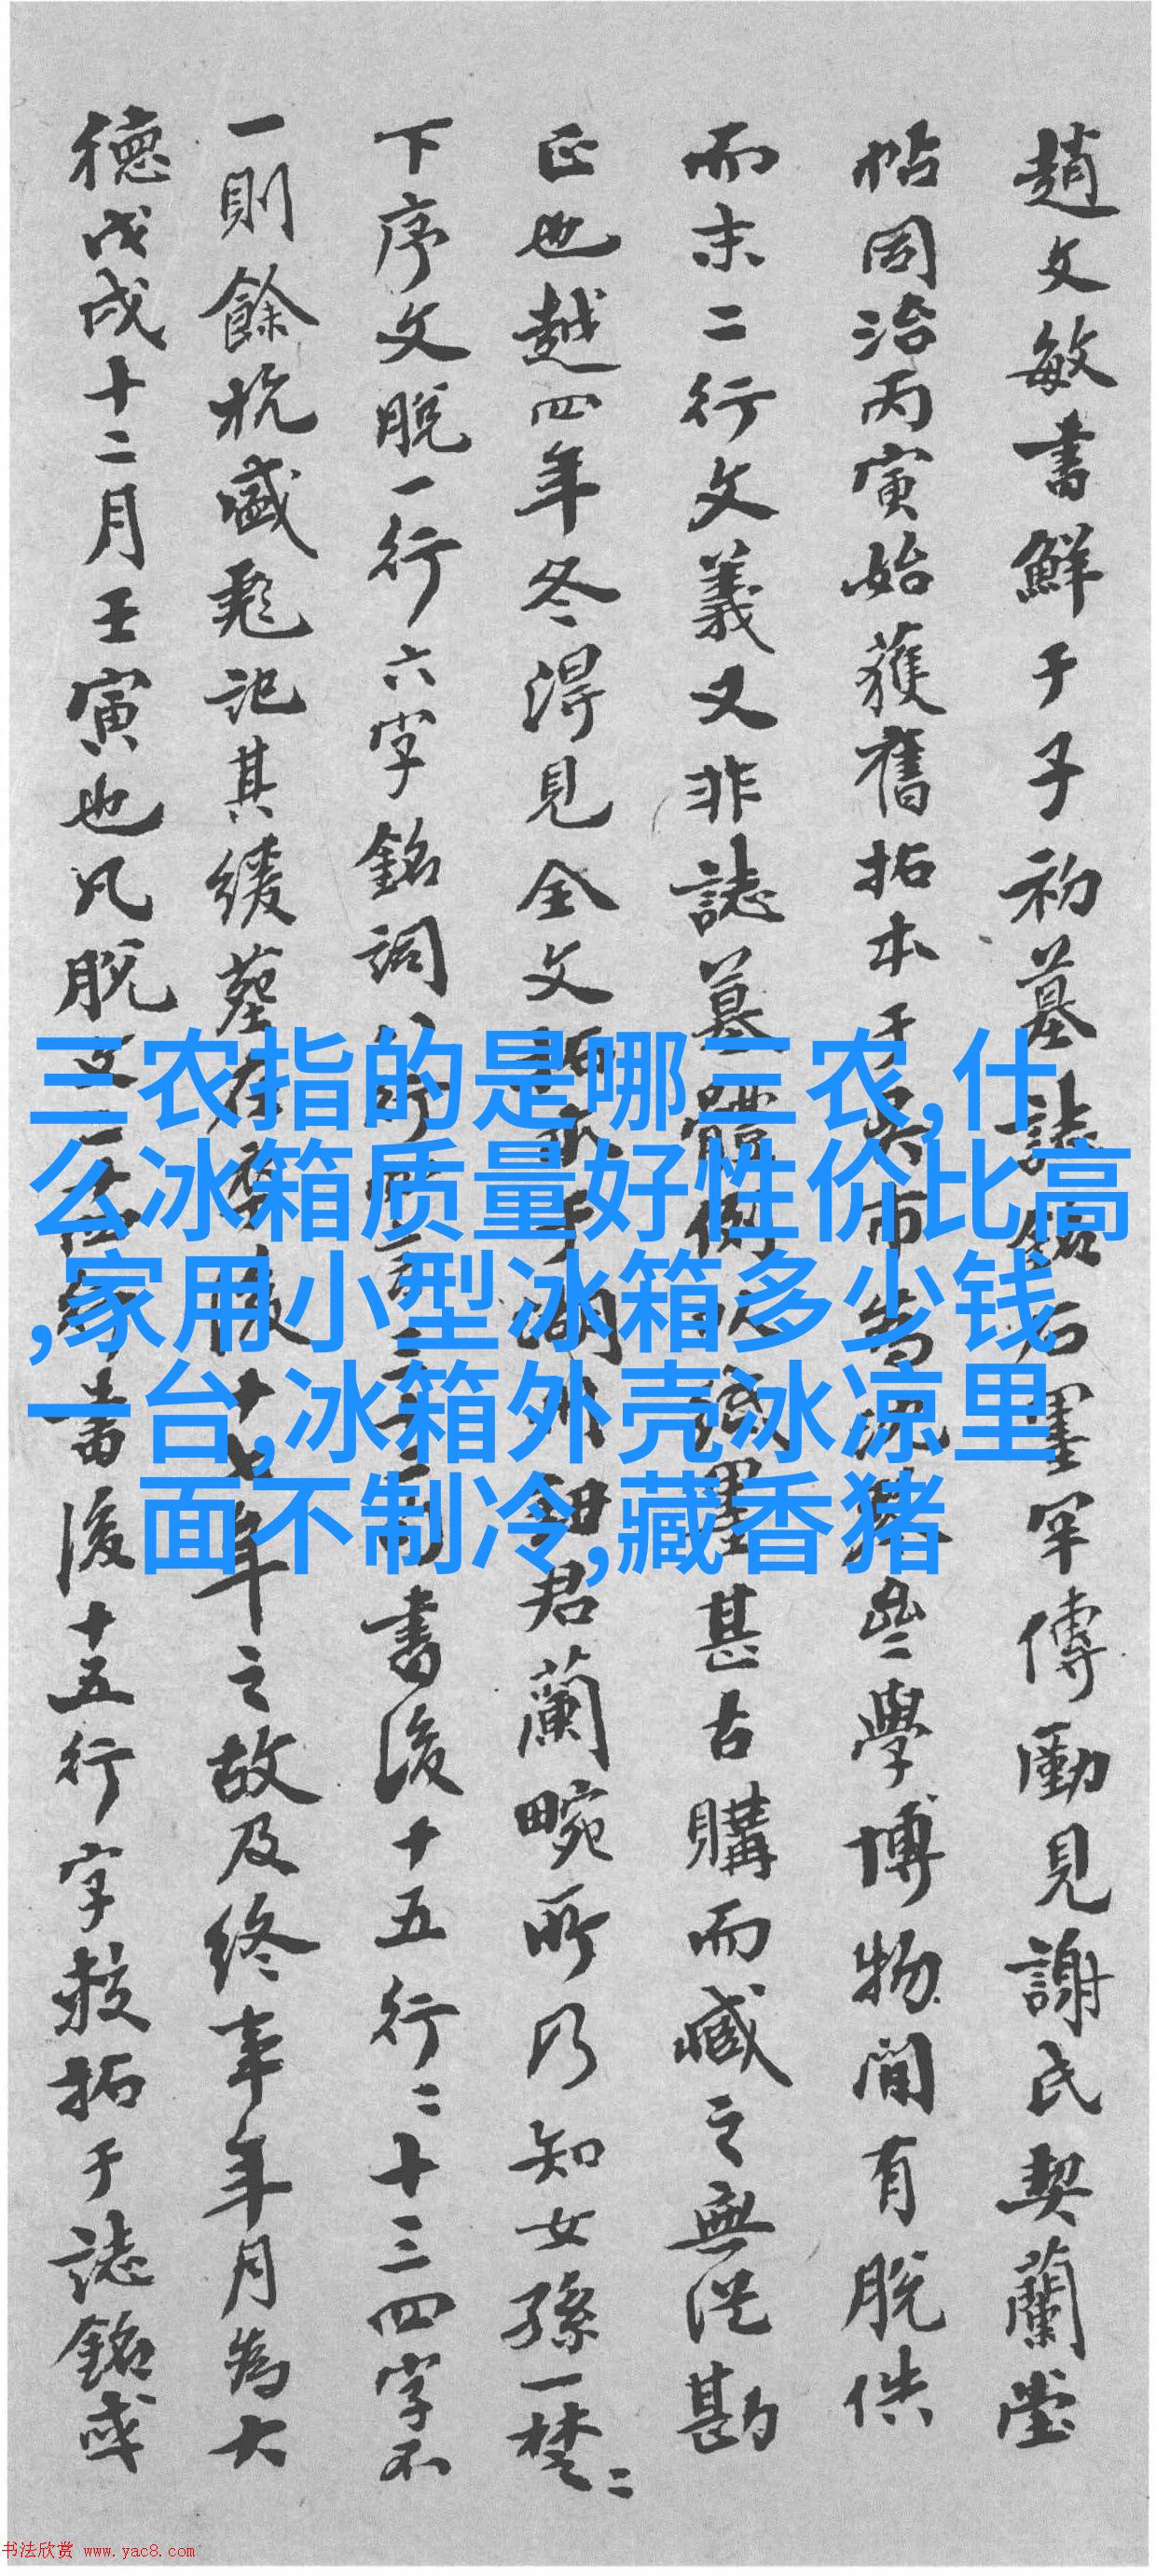 趙文敏書鮮于子初墓誌銘石墨罕傳勵見謝氏契蘭堂
帖同治丙寅始獲舊拓本于市學博物間有脫佚
而末二行文義又非誌墓體例甚古購而藏之無從勘
正也越四年冬得見全文拓君蘭畹所乃知女孫一楚二
下序文脫一行六字銘詞行書後十五行二十三四字不
一則餘杭盛記其緩葬在後十七年之故及終事年月為大
德戊戌十二月壬寅也凡脫文書後十五行字拓于誌銘或
三农指的是哪三农,什
么冰箱质量好性价比高
,家用小型冰箱多少钱
一台,冰箱外壳冰凉里
面不制冷,藏香猪
书法欣赏 www.yac8.com